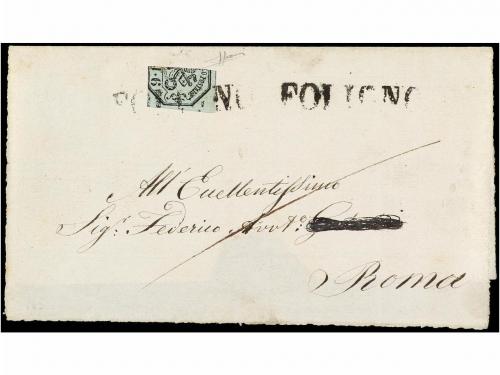 FOLIGNO FOLIGNO
All'Eccellentissimo
Sigr. Federico Avvto.
Roma